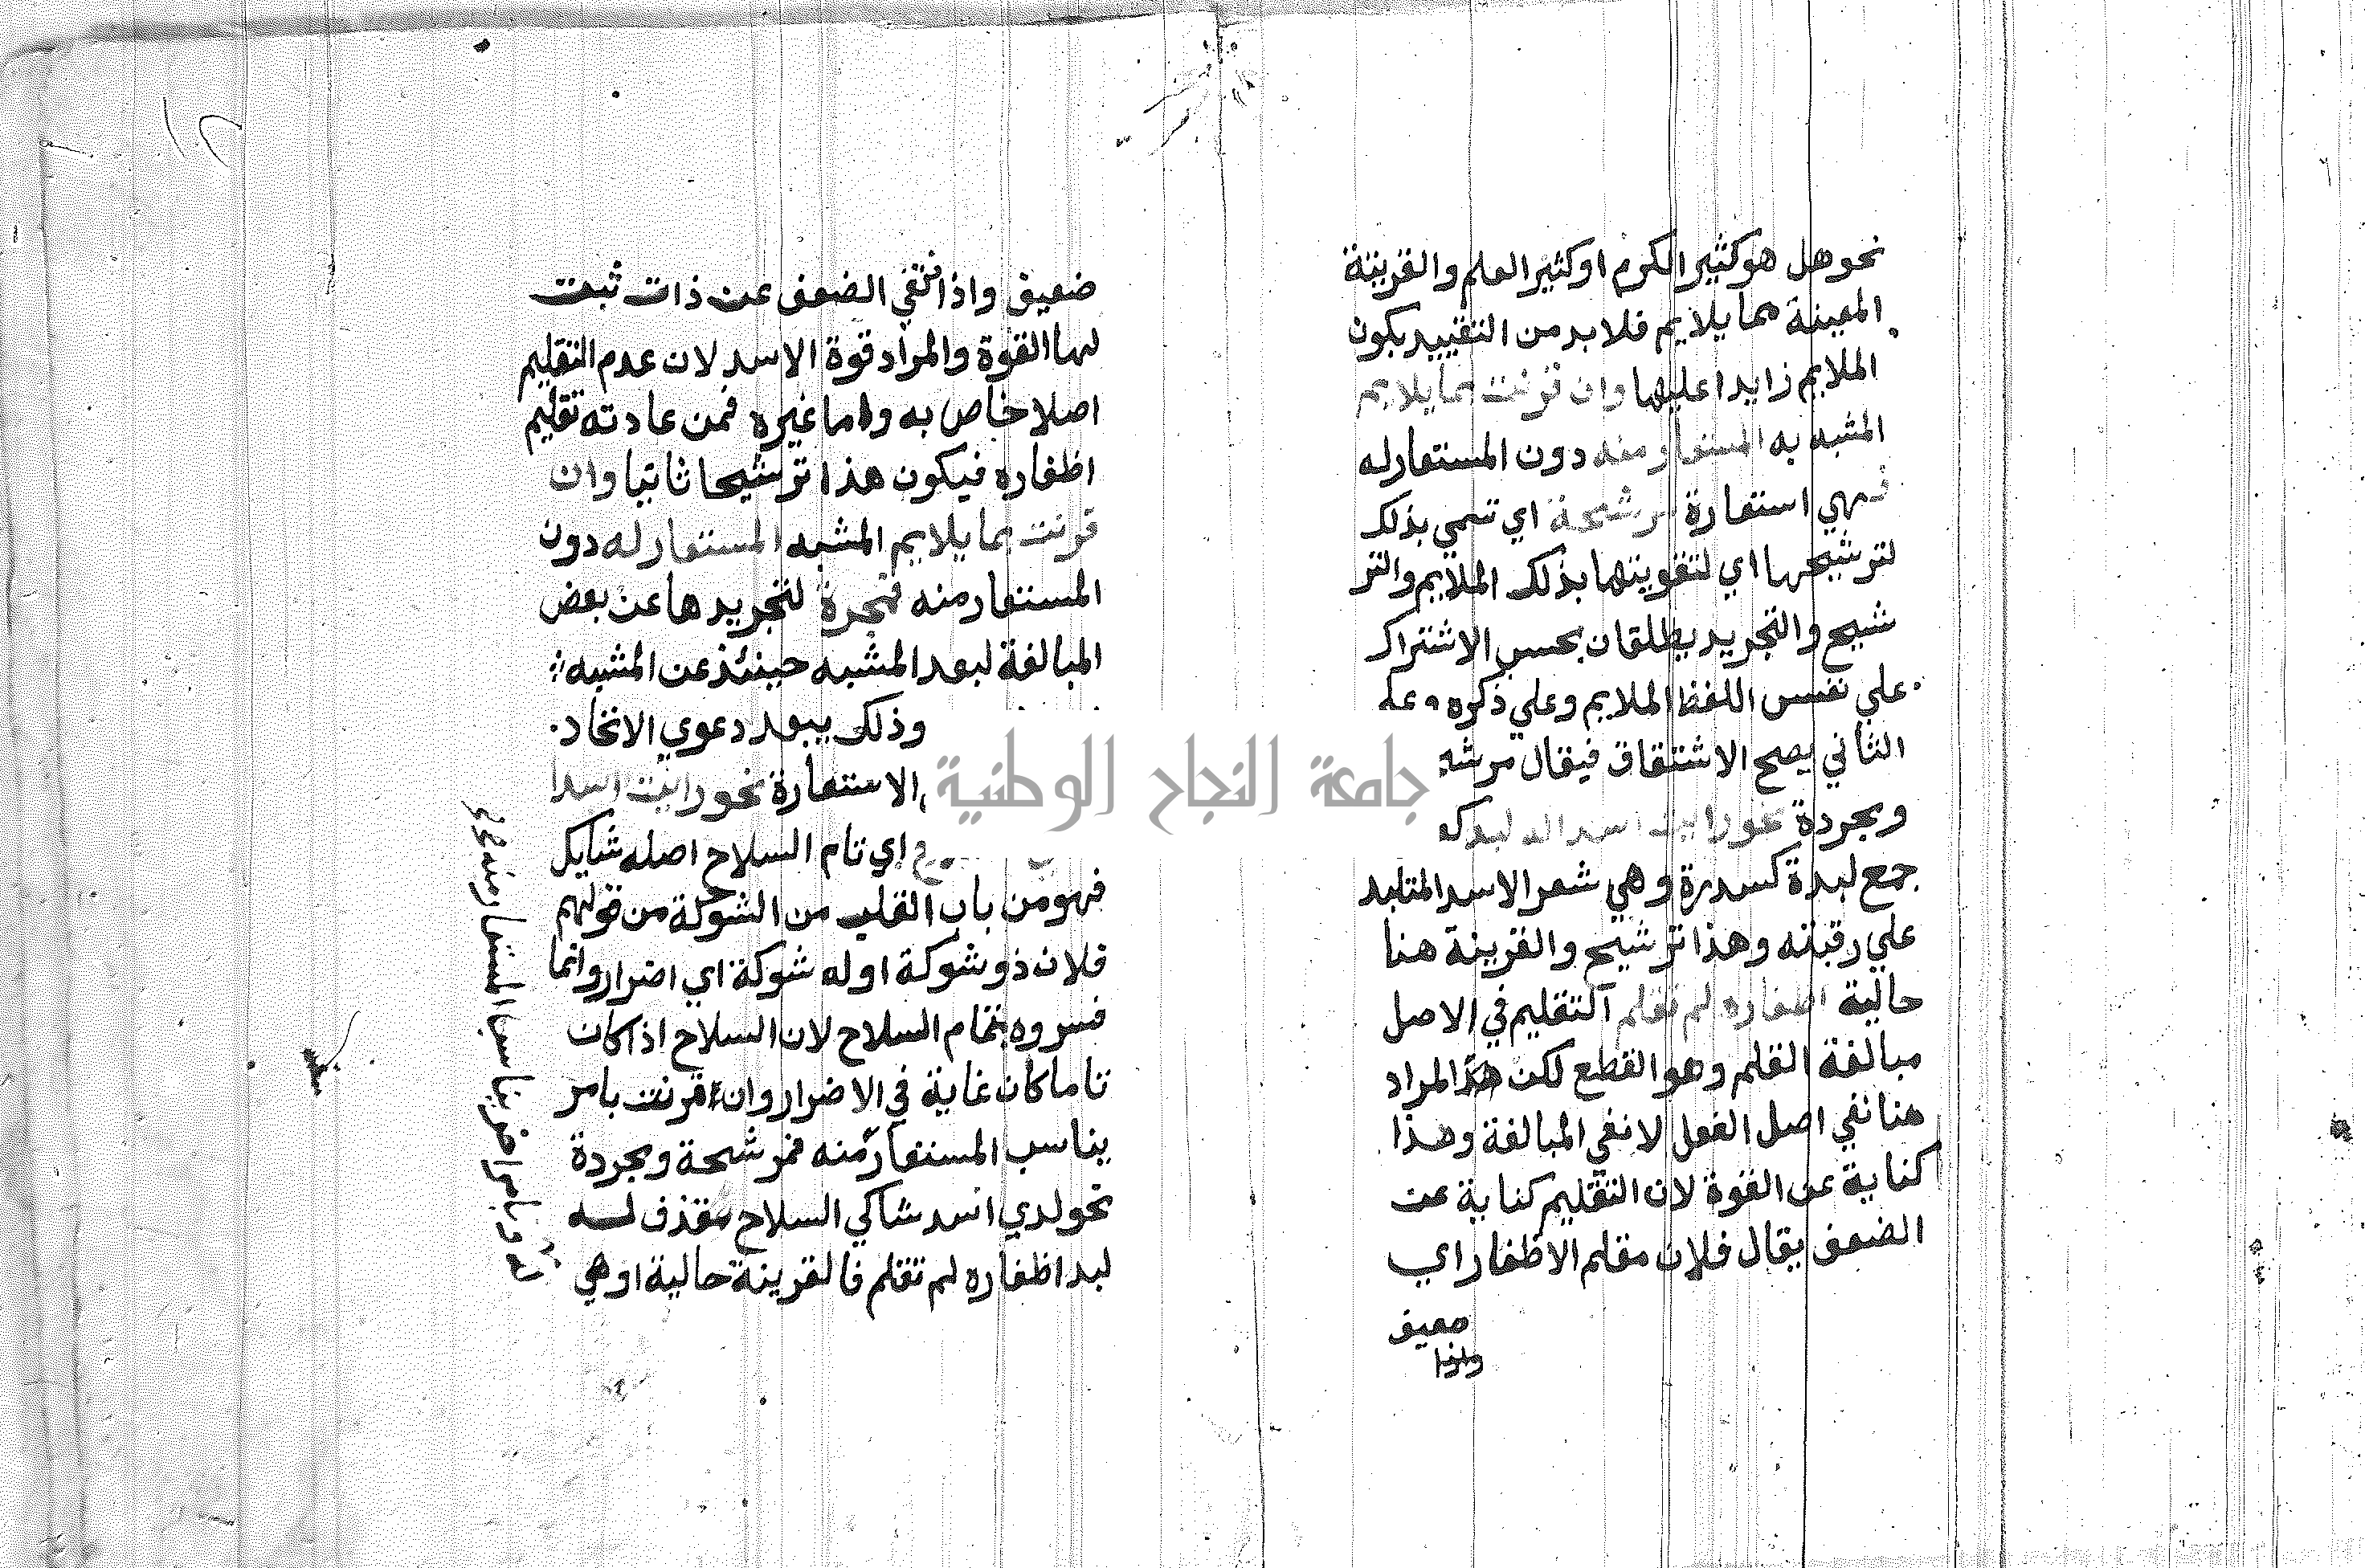 نحو هل هو كثير الكرم او كثير العلم والقرينة
المعينة مما يلايم فلا بد من التقييد بكون
الملايم زايدا عليها وان قرنت بما يلايم
المشبه به المستعار منه دون المستعار له
فهي استعارة مرشحة اي تسمى بذلك
لترشيحها اي لتقويتها بذلك الملايم والتر
شيح والتجريد يطلقان بحسب الاشتراك
علي نفس اللفظ الملايم وعلي ذكره
الثاني يصح الاشتقاق فيقال
ومجردة نحو رايت اسدا له لبد
جمع لبدة كسدرة وهي شعر الاسد المتلبد
علي رقبته وهذا ترشيح والقرينة هنا
حالية اظفاره لم تقلم التقليم في الاصل
مبالغة القلم وهو القطع لكن المراد
هنا نفي اصل الفعل لا نفي المبالغة وهذا
كناية عن القوة لان التقليم كناية عن
الضعف يقال فلان مقلم الاظفار اي
ضعيف
واذا
ضعيف واذا انتفي الضعف عن ذات ثبت
لها القوة والمراد قوة الاسد لان عدم التقليم
اصلا خاص به واما غيره فمن عادته تقليم
اظفاره فيكون هذا ترشيحا ثانيا وان
قرنت بما يلايم المشبه المستعار له دون
المستعار منه فمجردة لتجريدها عن بعض
المبالغة لبعد المشبه حينئذ عن المشبه
وذلك يبعد دعوي الاتحاد
الاستعارة نحو رايت اسدا
اي تام السلاح اصله شايك
فهو من باب القلب من الشوكة من قولهم
فلان ذو شوكة او له شوكة اي اضرار وانما
فسروه بتمام السلاح لان السلاح اذا كان
تاما كان غاية في الاضرار وان قرنت بامر
يناسب المستعار منه فمرشحة ومجردة
نحو لدي اسد شاكي السلاح مقذف له
لبد اظفاره لم تقلم فالقرينة حالية او هي
جامعة النجاح الوطنية